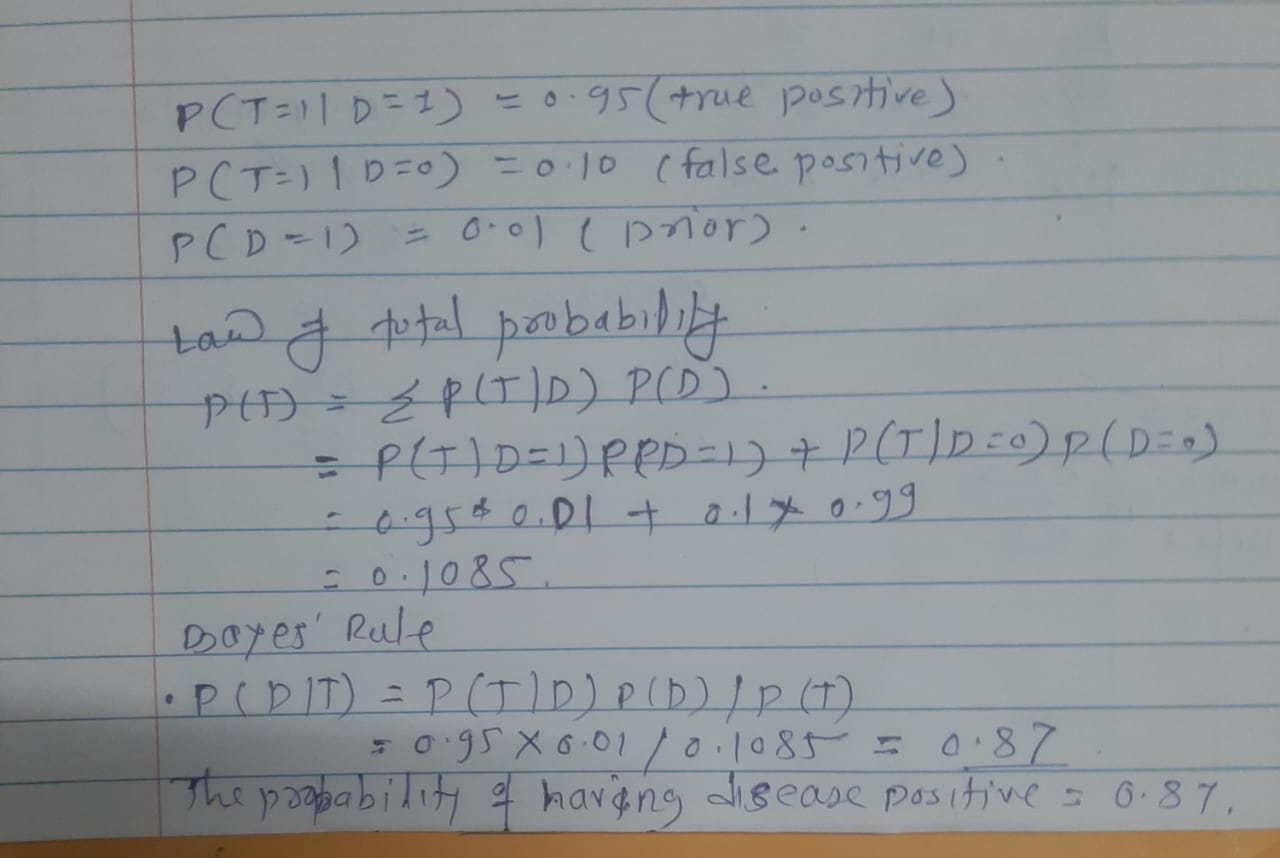 P(T=1 | D=1) = 0.95 (true positive)
P(T=1 | D=0) = 0.10 (false positive).
P(D=1) = 0.01 (prior).
Law of total probability
P(T) = Σ P(T|D) P(D).
= P(T|D=1) P(D=1) + P(T|D=0) P(D=0)
= 0.95 * 0.01 + 0.1 * 0.99
= 0.1085.
Bayes' Rule
• P(D|T) = P(T|D) P(D) / P(T)
= 0.95 X 0.01 / 0.1085 = 0.87
The probability of having disease positive = 0.87.